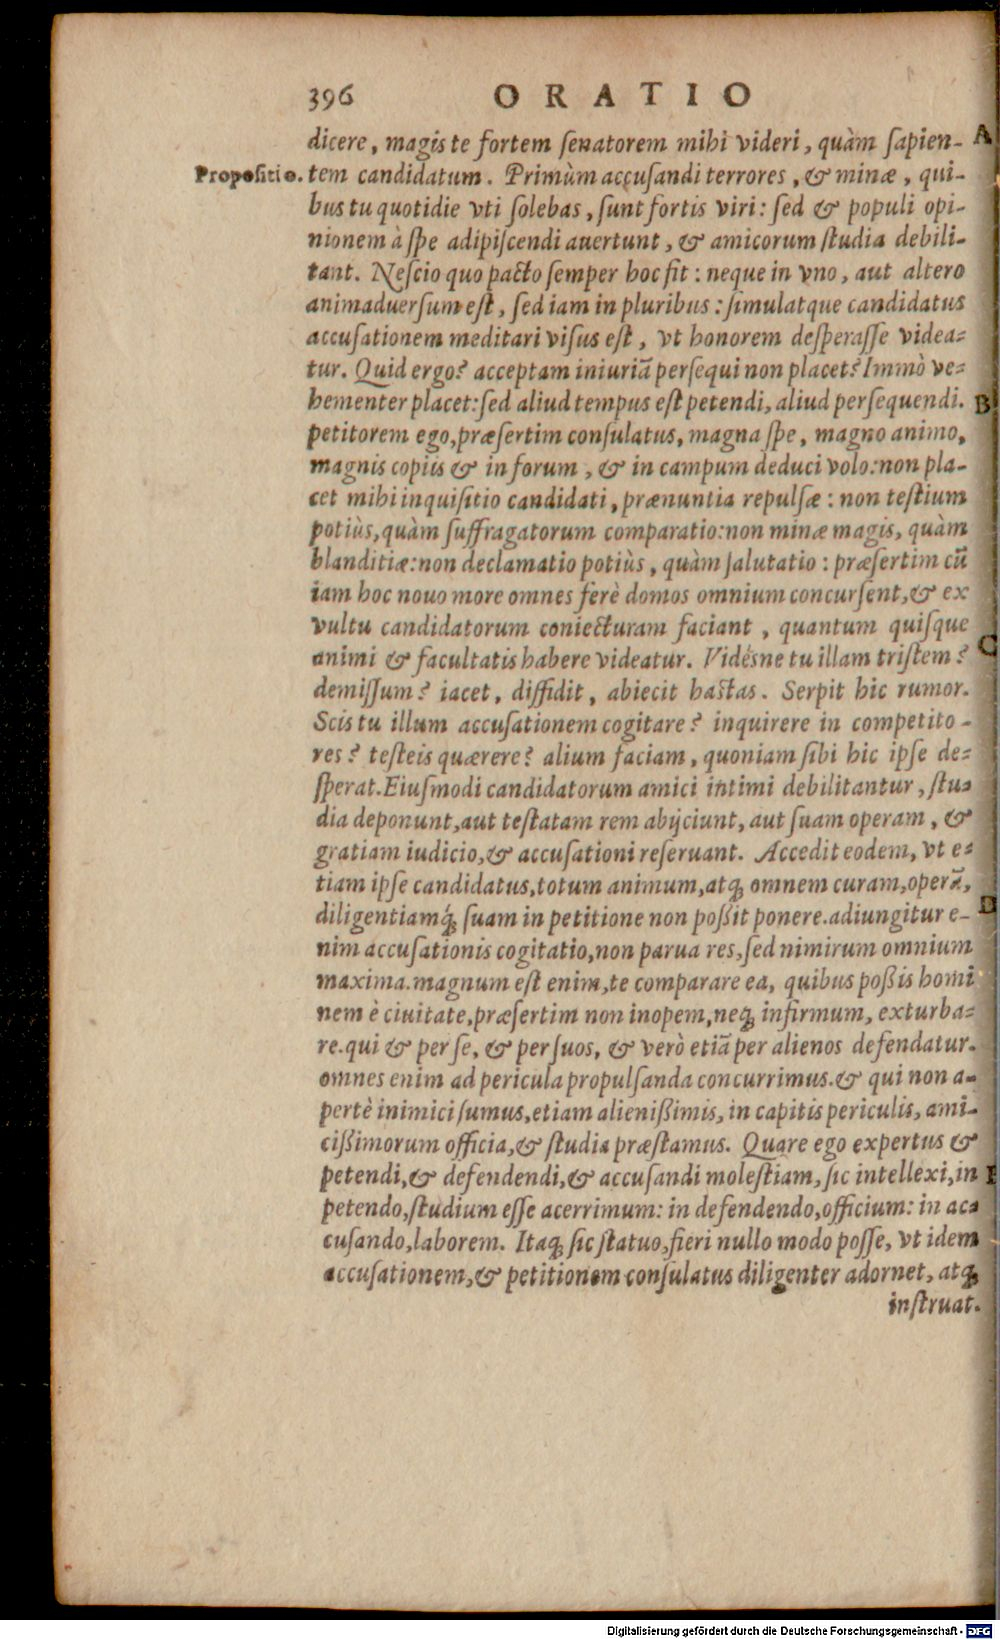 396 ORATIO
dicere, magis te fortem ſenatorem mihi videri, quàm ſapien- A
Propoſitio. tem candidatum. Primùm accuſandi terrores, & minæ, qui-
bus tu quotidie vti ſolebas, ſunt fortis viri: ſed & populi opi-
nionem à ſpe adipiſcendi auertunt, & amicorum ſtudia debili-
tant. Neſcio quo pacto ſemper hoc fit: neque in vno, aut altero
animaduerſum eſt, ſed iam in pluribus: ſimulatque candidatus
accuſationem meditari viſus eſt, vt honorem deſperaſſe videa-
tur. Quid ergo? acceptam iniuriã perſequi non placet? Immò ve-
hementer placet: ſed aliud tempus eſt petendi, aliud perſequendi. B
petitorem ego, præſertim conſulatus, magna ſpe, magno animo,
magnis copiis & in forum, & in campum deduci volo: non pla-
cet mihi inquiſitio candidati, prænuntia repulſæ: non teſtium
potiùs, quàm ſuffragatorum comparatio: non minæ magis, quàm
blanditiæ: non declamatio potiùs, quàm ſalutatio: præſertim cũ
iam hoc nouo more omnes ferè domos omnium concurſent, & ex
vultu candidatorum coniecturam faciant, quantum quiſque
animi & facultatis habere videatur. Vidésne tu illam triſtem? C
demiſſum? iacet, diffidit, abiecit haſtas. Serpit hic rumor.
Scis tu illum accuſationem cogitare? inquirere in competito-
res? teſteis quærere? alium faciam, quoniam ſibi hic ipſe de-
ſperat. Eiuſmodi candidatorum amici intimi debilitantur, ſtu-
dia deponunt, aut teſtatam rem abijciunt, aut ſuam operam, &
gratiam iudicio, & accuſationi reſeruant. Accedit eodem, vt e-
tiam ipſe candidatus, totum animum, atq; omnem curam, operã,
diligentiamq́; ſuam in petitione non poßit ponere. adiungitur e- D
nim accuſationis cogitatio, non parua res, ſed nimirum omnium
maxima. magnum eſt enim, te comparare ea, quibus poßis homi
nem è ciuitate, præſertim non inopem, neq; infirmum, exturba-
re. qui & per ſe, & per ſuos, & verò etiã per alienos defendatur.
omnes enim ad pericula propulſanda concurrimus. & qui non a-
pertè inimici ſumus, etiam alienißimis, in capitis periculis, ami-
cißimorum officia, & ſtudia præſtamus. Quare ego expertus &
petendi, & defendendi, & accuſandi moleſtiam, ſic intellexi, in
petendo, ſtudium eſſe acerrimum: in defendendo, officium: in ac-
cuſando, laborem. Itaq; ſic ſtatuo, fieri nullo modo poſſe, vt idem
accuſationem, & petitionem conſulatus diligenter adornet, atq;
inſtruat.
Digitalisierung gefördert durch die Deutsche Forschungsgemeinschaft - DFG